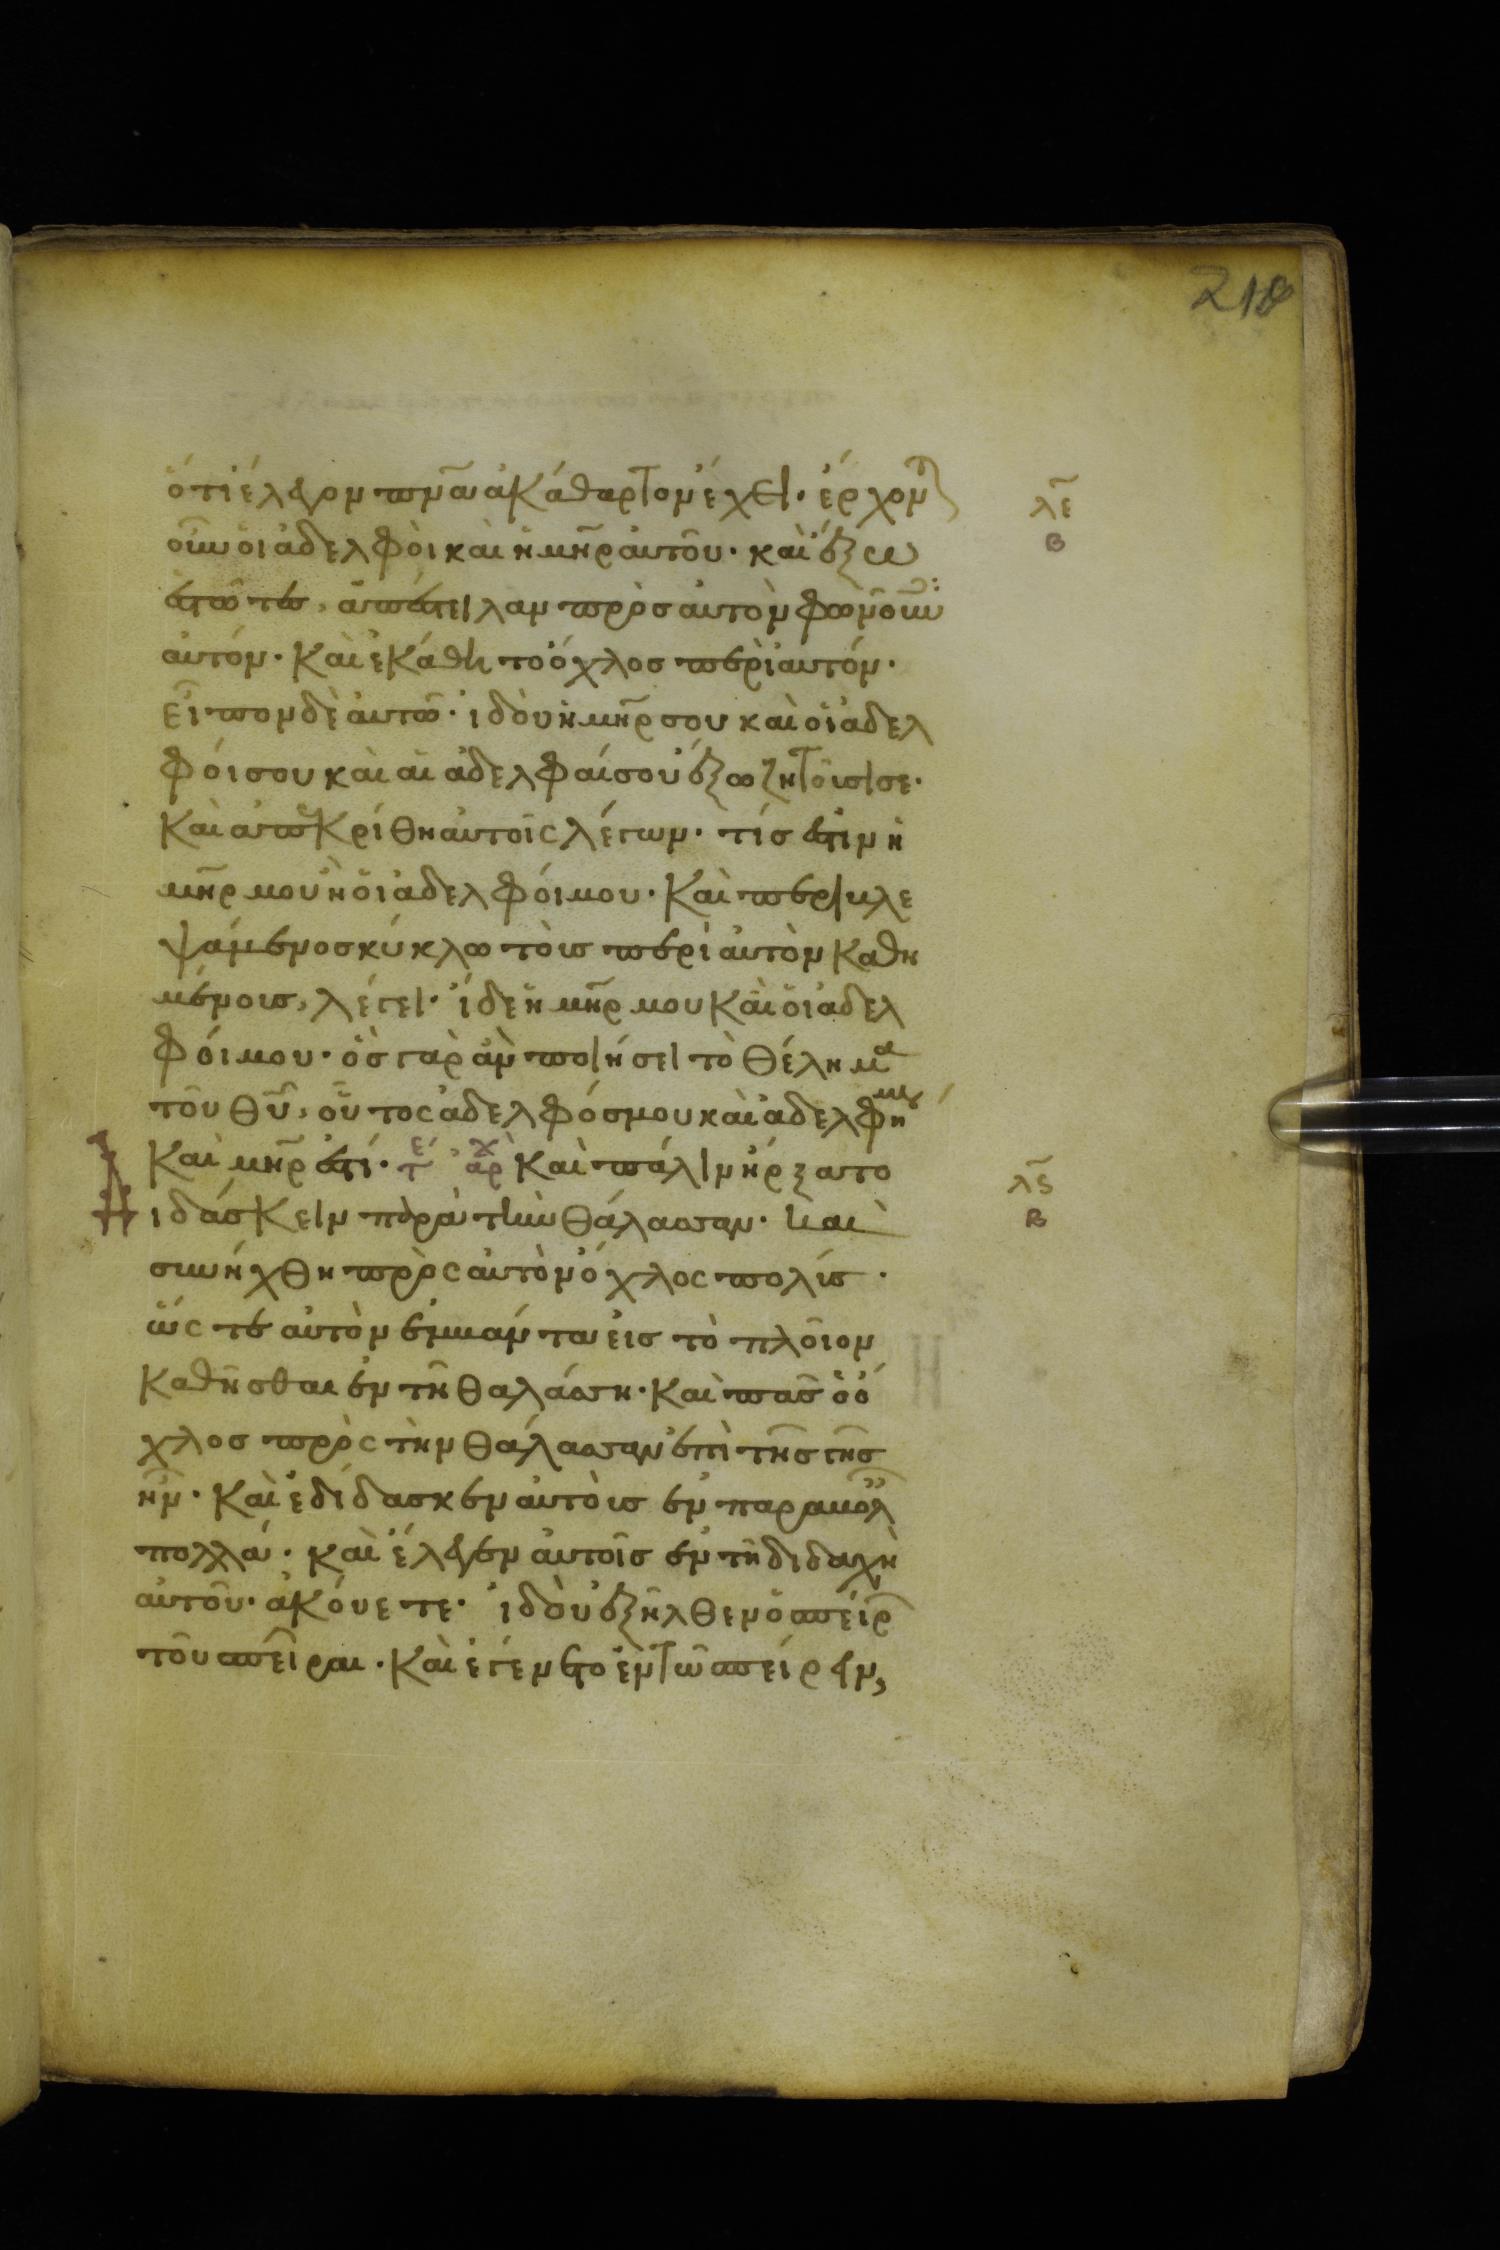 210
ὅτι ἔλεγον πνᾶ ἀκάθαρτον ἔχει· ἔρχοντ
οὖν οἱ ἀδελφὸι καὶ ἡ μῆρ ἀυτοῦ· καὶ ἔξω
ἑστῶτες, ἀπέστειλαν πρὸς αὐτὸν φωνοῦν
αὐτόν· Καὶ ἐκάθητο ὄχλος περὶ αὐτόν·
εἶπον δὲ ἀυτῶ· ἰδοὺ ἡ μῆρ σου καὶ οἱ ἀδελ
φόι σου καὶ αἱ ἀδελφαί σου ἔξω ζητοῦσι σε·
Καὶ ἀπεκρίθη αυτοῖς λέγων· τίς ἐστιν ἡ
μῆρ μου ἢ οἱ ἀδελφόι μου· Καὶ περιβλε
ψάμενος κύκλω τοὺς περὶ ἀυτὸν καθη
μένους, λέγει· ἴδε ἡ μῆρ μου Καὶ οἱ ἀδελ
φόι μου· ὃς γὰρ ἂν ποιήσει τὸ θέλημα
τοῦ θῦ, οὗτος ἀδελφός μου καὶ ἀδελφη μου
Καὶ μῆρ ἐστί· τέ ἀρχ Καὶ πάλιν ἤρξατο
διδάσκειν παρὰ τὴν θάλασσαν· καὶ
συνήχθη πρὸς αὐτὸν ὄχλος πολύς·
ὥς τε αὐτὸν ἐμβάντα εἰς τὸ πλοῖον
καθῆσθαι ἐν τῆ θαλάσση· Καὶ πᾶς ὁ ὄ
χλος πρὸς τὴν θάλασσαν ἐπὶ τῆς γῆς
ἦν· Καὶ ἐδίδασκεν αὐτὸυς ἐν παραβολ
πολλά· καὶ ἔλεγεν ἀυτοῖς ἐν τῆ διδαχῆ
αὐτοῦ· ἀκόυετε· ἰδοὺ ἐξῆλθεν ὁ σπείρ
τοῦ σπεῖραι· Καὶ ἐγένετο ἐν τῶ σπείρειν,
λε
β
λς
β